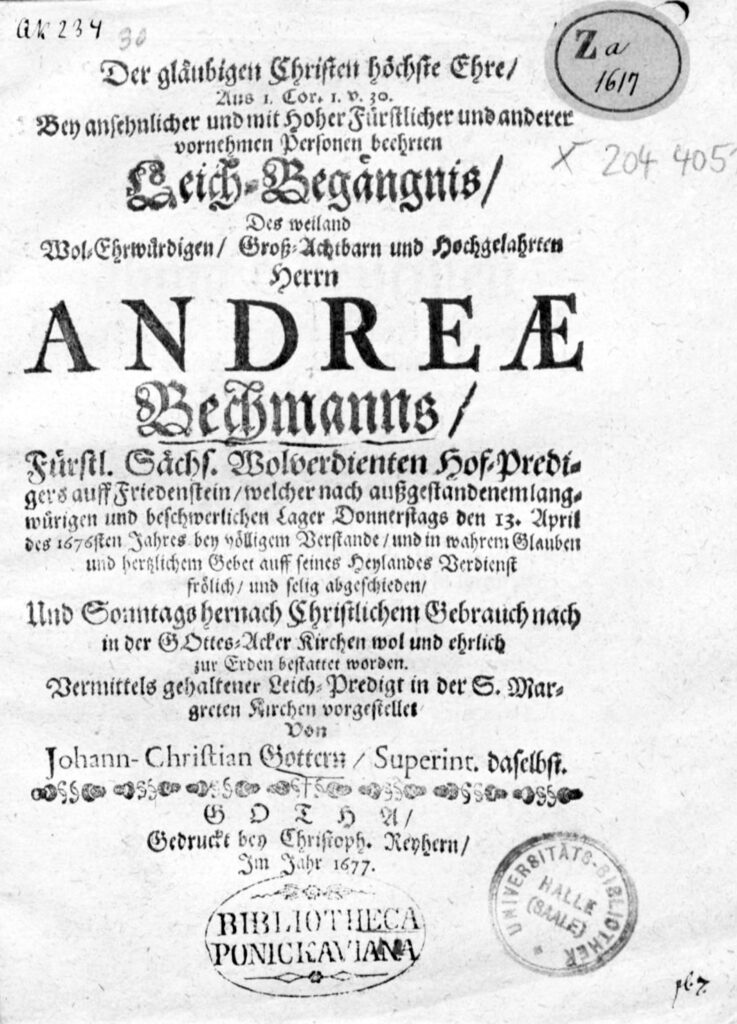 AK 234
30
Z a
1617
X 204 405
Der gläubigen Christen höchste Ehre/
Aus 1. Cor. 1. v. 30.
Bey ansehnlicher und mit Hoher Fürstlicher und anderer
vornehmen Personen beehrten
Leich-Begängnis/
Des weiland
Wol-Ehrwürdigen/ Groß-Achtbarn und Hochgelahrten
Herrn
ANDREÆ
Bechmanns/
Fürstl. Sächs. Wolverdienten Hof-Predi-
gers auff Friedenstein/ welcher nach außgestandenem lang-
würigen und beschwerlichen Lager Donnerstags den 13. April
des 1676sten Jahres bey völligem Verstande/ und in wahrem Glauben
und hertzlichem Gebet auff seines Heylandes Verdienst
frölich/ und selig abgeschieden/
Und Sonntags hernach Christlichem Gebrauch nach
in der GOttes-Acker Kirchen wol und ehrlich
zur Erden bestattet worden.
Vermittels gehaltener Leich-Predigt in der S. Mar-
greten Kirchen vorgestellet
Von
Johann-Christian Gottern/ Superint. daselbst.
GOTHA/
Gedruckt bey Christoph. Reyhern/
Im Jahr 1677.
BIBLIOTHECA
PONICKAVIANA
UNIVERSITÄTS-BIBLIOTHEK
HALLE
(SAALE)